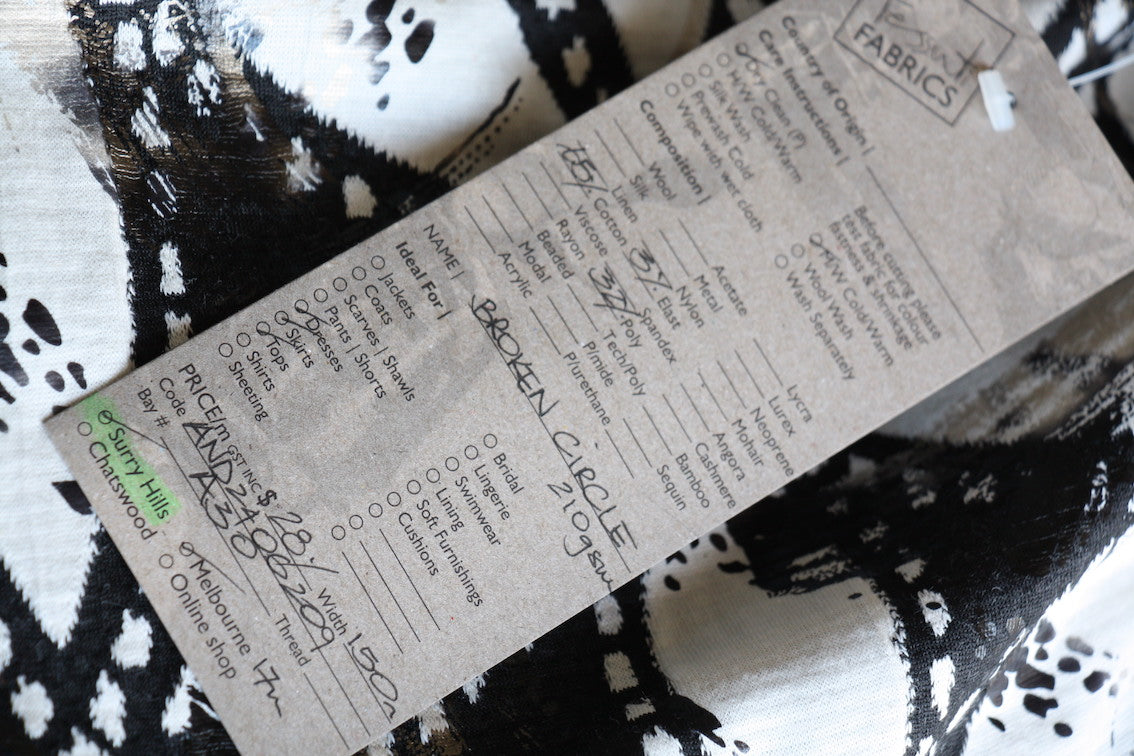 Tessuti
FABRICS
Country of Origin |
Care Instructions |
Dry Clean (P)
H/W Cold/Warm
Silk Wash
Prewash Cold
Wipe with wet cloth
Before cutting please
test fabric for colour
fastness & shrinkage
M/W Cold/Warm
Wool Wash
Wash Separately
Composition |
Wool
Silk
Linen
Cotton
Viscose
Rayon
Beaded
Modal
Acrylic
Acetate
Metal
Nylon
3% Elast
Spandex
Poly
Tech/Poly
P/mide
P/urethane
Lycra
Lurex
Neoprene
Mohair
Angora
Cashmere
Bamboo
Sequin
NAME | BROKEN CIRCLE
210gsm
Ideal For |
Jackets
Coats
Scarves | Shawls
Pants | Shorts
Dresses
Skirts
Tops
Shirts
Sheeting
Bridal
Lingerie
Swimwear
Lining
Soft Furnishings
Cushions
PRICE/m GST INC $ 28.- Width 150
Code AND2400G209
Bay # A30 Thread
Surry Hills Melbourne 17m
Chatswood Online shop